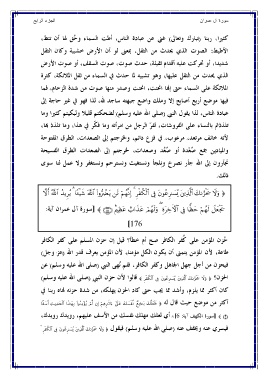 سورة آل عمران
الجزء الرابع
كثيرا. ربنا (تبارك وتعالى) غني عن عبادة الناس، أطت السماء وحُق لها أن تئط،
الأطيط: الصوت الذي يحدث من الثقل، بمعنى لو أن الأرض خشبية وكان الثقل
شديدا، أو تحركت عليه أقدام ثقيلة، حدث صوت، صوت السقف، أو صوت الأرض
الذي يحدث من الثقل عليها، وهو تشبيه لما حدث في السماء من ثقل الملائكة، كثرة
الملائكة على السماء حتى إنها أطت، أطت وصدر منها صوت من شدة الزحام، فما
فيها موضع أربع أصابع إلا وملك واضع جبهته ساجد لله. لذا فهو في غير حاجة إلى
عبادة الناس، لذا يقول النبي (صلى الله عليه وسلم) لضحكتم قليلا ولبكيتم كثيرا وما
تلذذتم بالنساء على الفروشات، لفرّ الرجل من امرأته وما فكّر في هذا، وما تلذذ بها،
لأنه خائف مرتعد، مرعوب، في فزع دائم. ولخرجتم إلى الصعدات، الطرق المفتوحة
والميادين جمع صُعدة أو صُعُد وصعدات. لخرجتم إلى الصعدات الطرق الفسيحة
تجأرون إلى الله جأر تصرخ وتلجأ وتستغيث وتسترحم وتستغفر ولا عمل لنا سوى
ذلك.
﴿ وَلَا يَحْزُنكَ ٱلَّذِينَ يُسَٰرِعُونَ فِى ٱلْكُفْرِ ۚ إِنَّهُمْ لَن يَضُرُّوا۟ ٱللَّهَ شَيْـًٔا ۗ يُرِيدُ ٱللَّهُ أَلَّا
يَجْعَلَ لَهُمْ حَظًّا فِى ٱلْـَٔاخِرَةِ ۖ وَلَهُمْ عَذَابٌ عَظِيمٌ ﴾ [سورة آل عمران آية:
176]
حُزن المؤمن على كُفر الكافر صح أم خطأ؟ قيل إن حزن المسلم على كفر الكافر
طاعة، لأن المؤمن يتمنى أن يكون الكل مؤمنا، لأن المؤمن يعرف قدر الله (عز وجل)
فيحزن من أجل جهل الجاهل وكفر الكافر، فلم نُهي النبي (صلى الله عليه وسلم) عن
الحزن؟ ﴿ وَلَا يَحْزُنكَ ٱلَّذِينَ يُسَٰرِعُونَ فِى ٱلْكُفْرِ ﴾ قالوا: لأن حزن النبي (صلى الله عليه وسلم)
كان أكثر مما يلزم، وأشد مما يجب حتى كاد الحزن يهلكه، من شدة حزنه نهاه ربنا في
أكثر من موضع حيث قال له ﴿ فَلَعَلَّكَ بَٰخِعٌ نَّفْسَكَ عَلَىٰٓ ءَاثَٰرِهِمْ إِن لَّمْ يُؤْمِنُوا۟ بِهَٰذَا ٱلْحَدِيثِ أَسَفًا
﴾ [سورة الكهف آية: 6]، أي لعلك مهلك نفسك من الأسف عليهم، رويدك رويدك،
فيسري عنه ويخفف عنه (صلى الله عليه وسلم) فيقول ﴿ وَلَا يَحْزُنكَ ٱلَّذِينَ يُسَٰرِعُونَ فِى ٱلْكُفْرِ ۚ